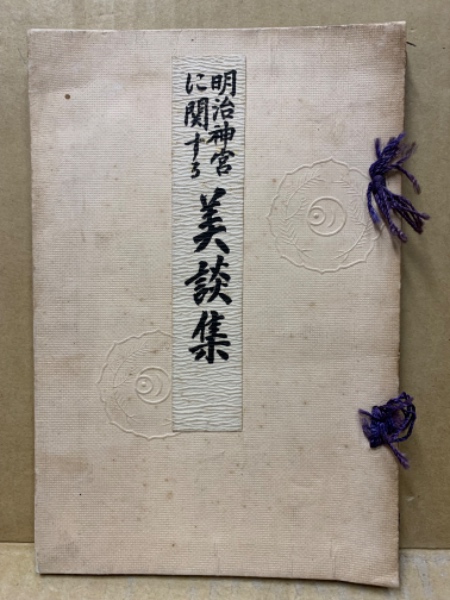 明治神宮
に関する
美談集